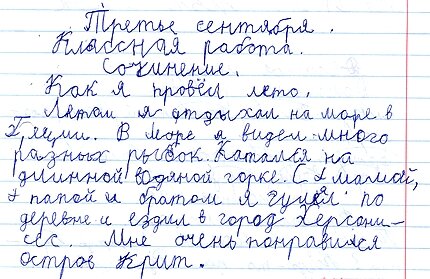 Третье сентября.
Классная работа.
Сочинение.
Как я провёл лето.
Летом я отдыхал на море в
Греции. В море я видел много
разных рыбок. Катался на
длинной водяной горке. С мамой,
папой и братом я гулял по
деревне и ездил в город Херсони-
сес. Мне очень понравился
остров Крит.